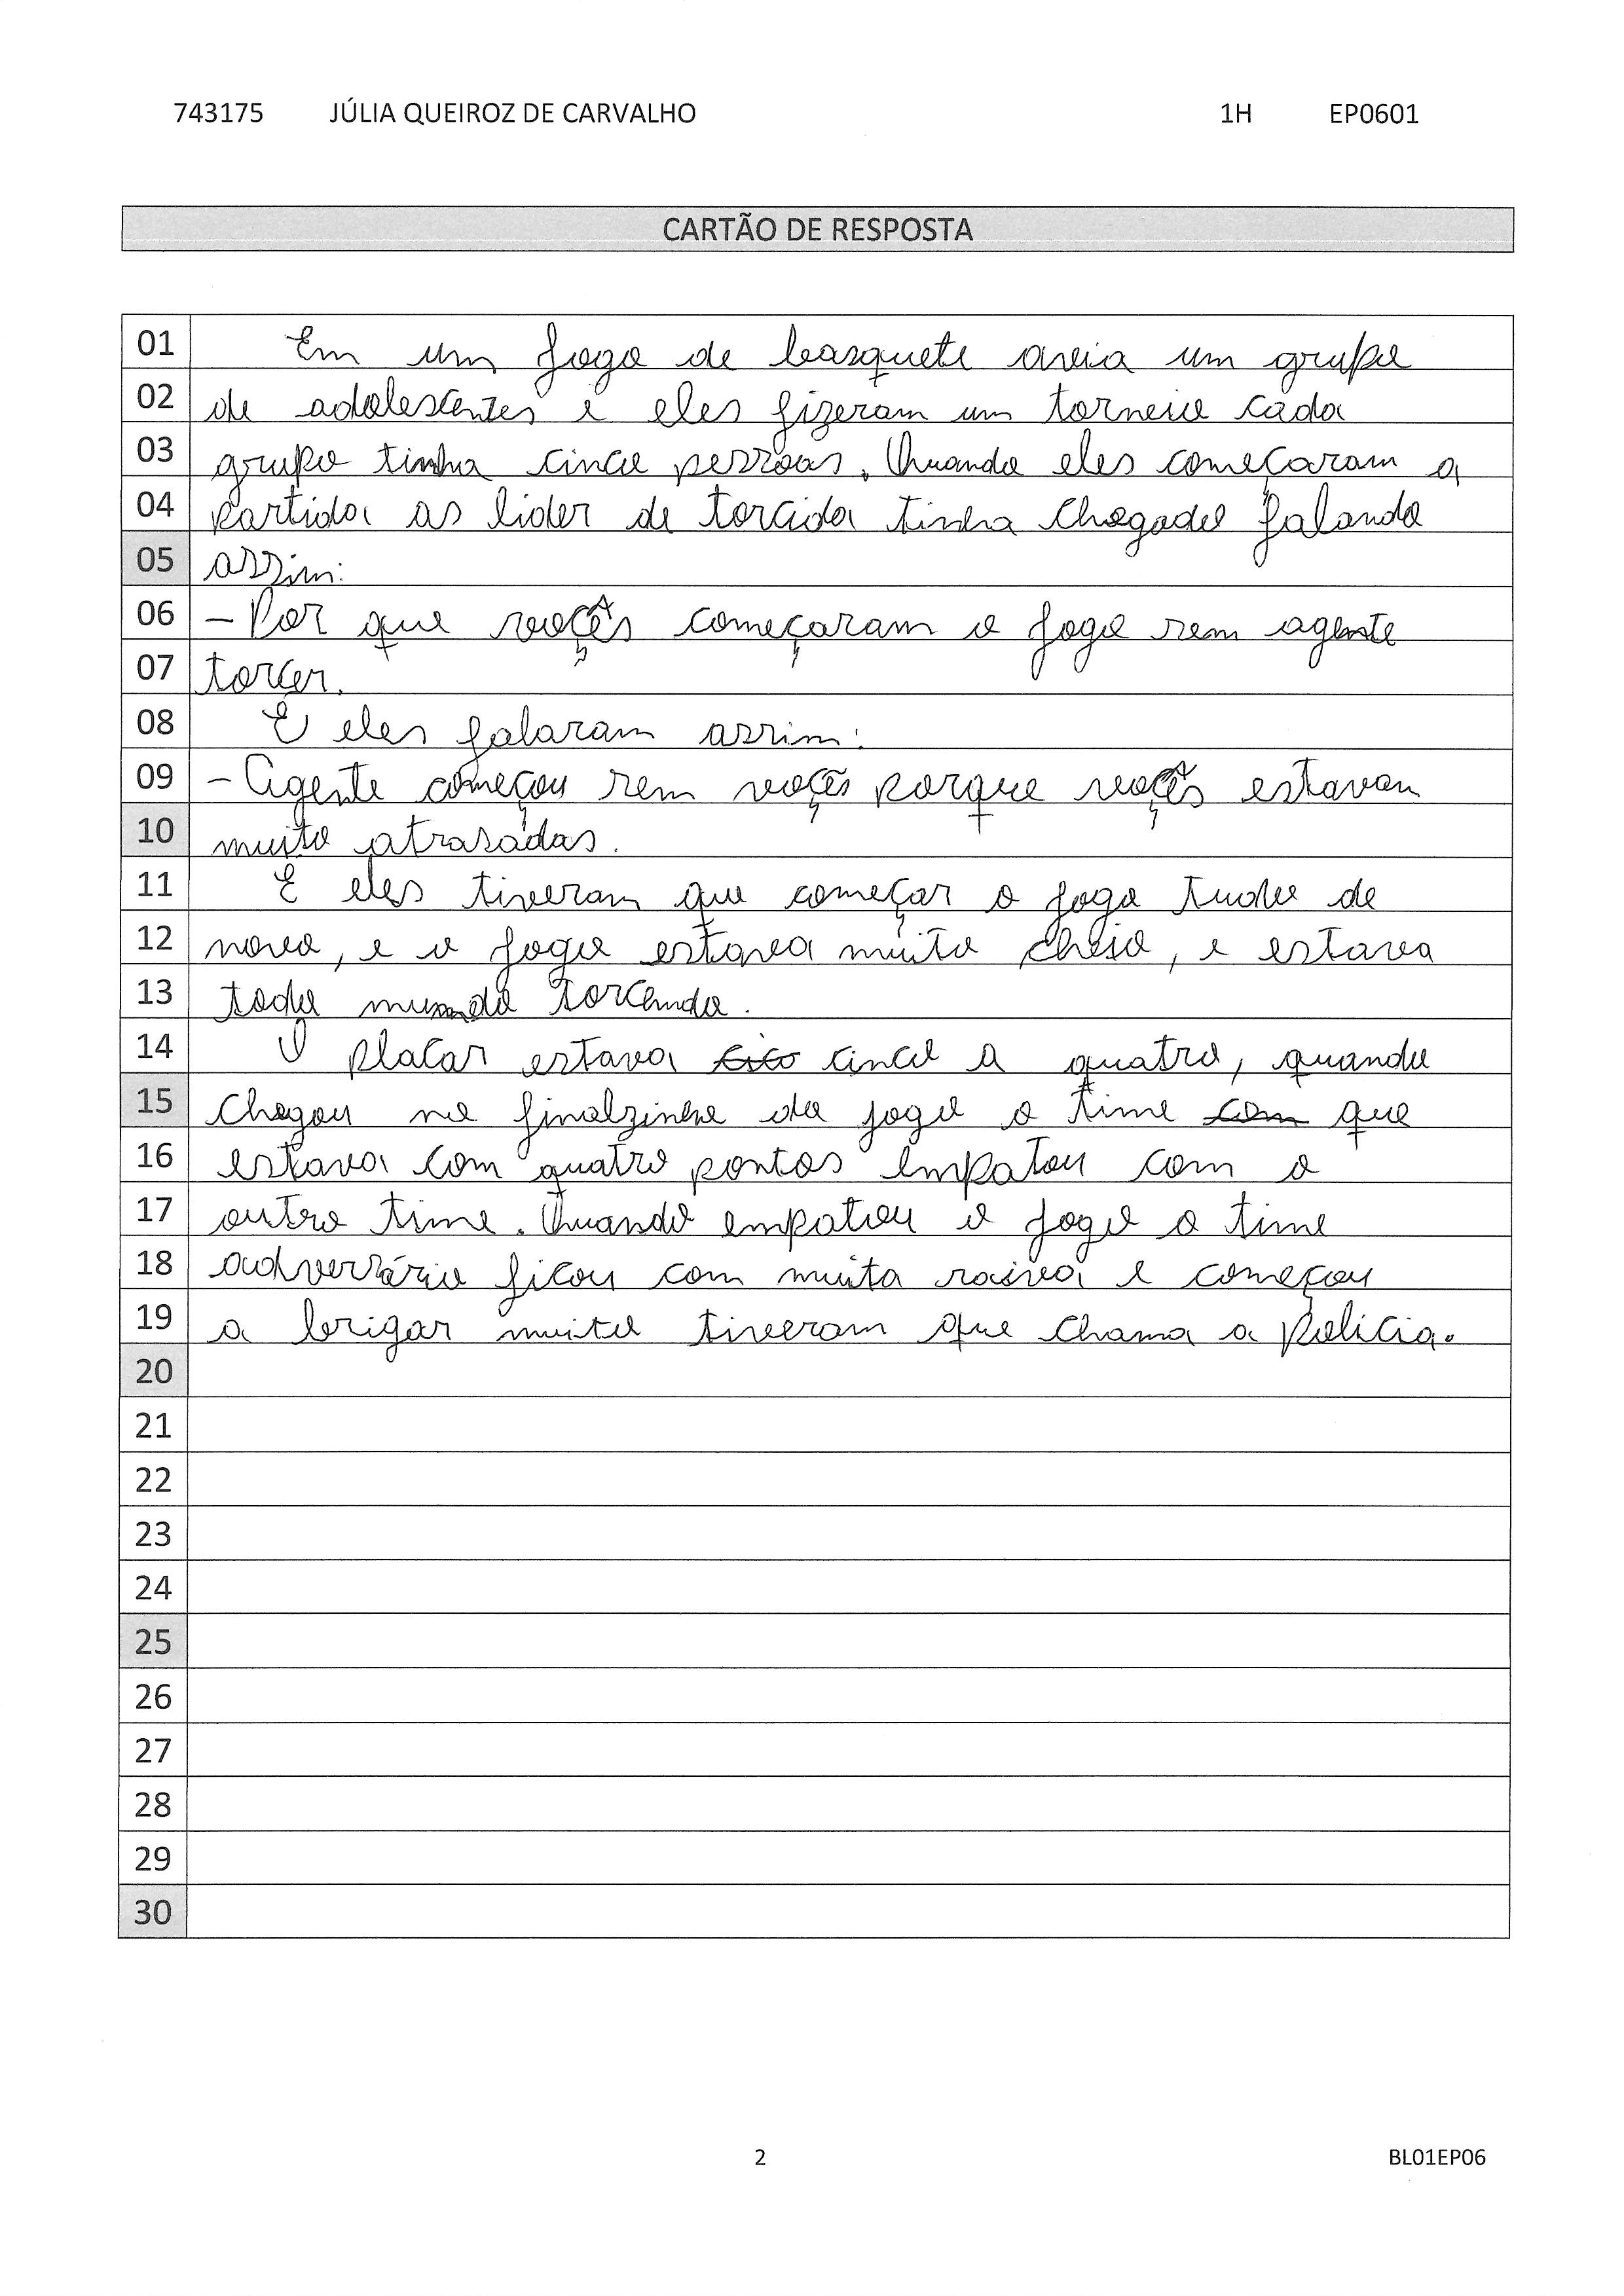 743175 JÚLIA QUEIROZ DE CARVALHO 1H EP0601
CARTÃO DE RESPOSTA
01 Em um jogo de basquete avia um grupo
02 de adolescentes e eles fizeram um torneio cada
03 grupo tinha cinco pessoas. Quando eles começaram a
04 partida as lider de torcida tinha chegado falando
05 assim:
06 – Por que voçês começaram o jogo sem agente
07 torcer.
08 E eles falaram assim:
09 – Agente começou sem voçês porque voçês estavam
10 muito atrasadas.
11 E eles tiveram que começar o jogo tudo de
12 novo, e o jogo estava muito cheio, e estava
13 todo mundo torcendo.
14 O placar estava cinco a quatro, quando
15 chegou no finalzinho do jogo o time com que
16 estava com quatro pontos empatou com o
17 outro time. Quando empatou o jogo o time
18 adversário ficou com muita raiva e começou
19 a brigar muito tiveram que chama a policia.
20
21
22
23
24
25
26
27
28
29
30
2 BL01EP06